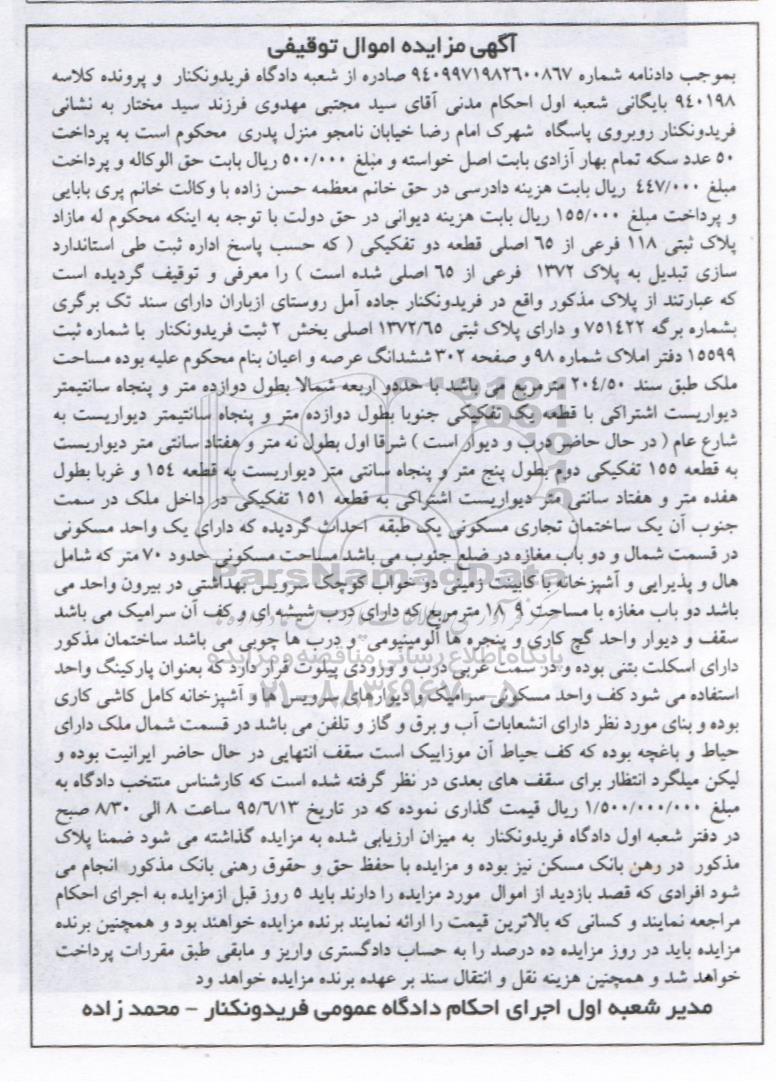 آگهی مزایده اموال توقیفی
بموجب دادنامه شماره ۹٤۰۹۹۷۱۹۸۲٦۰۰۸٦۷ صادره از شعبه دادگاه فریدونکنار و پرونده کلاسه
۹٤۰۱۹۸ بایگانی شعبه اول احکام مدنی آقای سید مجتبی مهدوی فرزند سید مختار به نشانی
فریدونکنار روبروی پاسگاه شهرک امام رضا خیابان نامجو منزل پدری محکوم است به پرداخت
۵۰ عدد سکه تمام بهار آزادی بابت اصل خواسته و مبلغ ۵۰۰/۰۰۰ ریال بابت حق الوکاله و پرداخت
مبلغ ٤٤۷/۰۰۰ ریال بابت هزینه دادرسی در حق خانم معظمه حسن زاده با وکالت خانم پری بابایی
و پرداخت مبلغ ۱۵۵/۰۰۰ ریال بابت هزینه دیوانی در حق دولت با توجه به اینکه محکوم له مازاد
پلاک ثبتی ۱۱۸ فرعی از ٦۵ اصلی قطعه دو تفکیکی ( که حسب پاسخ اداره ثبت طی استاندارد
سازی تبدیل به پلاک ۱۳۷۲ فرعی از ٦۵ اصلی شده است ) را معرفی و توقیف گردیده است
که عبارتند از پلاک مذکور واقع در فریدونکنار جاده آمل روستای ازباران دارای سند تک برگری
بشماره برگه ۷۵۱٤۲۲ و دارای پلاک ثبتی ۱۳۷۲/٦۵ اصلی بخش ۲ ثبت فریدونکنار با شماره ثبت
۱۵۵۹۹ دفتر املاک شماره ۹۸ و صفحه ۳۰۲ ششدانگ عرصه و اعیان بنام محکوم علیه بوده مساحت
ملک طبق سند ۲۰٤/۵۰ مترمربع می باشد با حدود اربعه شمالا بطول دوازده متر و پنجاه سانتیمتر
دیواریست اشتراکی با قطعه یک تفکیکی جنوبا بطول دوازده متر و پنجاه سانتیمتر دیواریست به
شارع عام ( در حال حاضر درب و دیوار است ) شرقا اول بطول نه متر و هفتاد سانتی متر دیواریست
به قطعه ۱۵۵ تفکیکی دوم بطول پنج متر و پنجاه سانتی متر دیواریست به قطعه ۱۵٤ و غربا بطول
هفده متر و هفتاد سانتی متر دیواریست اشتراکی به قطعه ۱۵۱ تفکیکی در داخل ملک در سمت
جنوب آن یک ساختمان تجاری مسکونی یک طبقه احداث گردیده که دارای یک واحد مسکونی
در قسمت شمال و دو باب مغازه در ضلع جنوب می باشد مساحت مسکونی حدود ۷۰ متر که شامل
هال و پذیرایی و آشپزخانه با کابینت زمینی دو خواب کوچک سرویس بهداشتی در بیرون واحد می
باشد دو باب مغازه با مساحت ۹ ۱۸ مترمربع که دارای درب شیشه ای و کف آن سرامیک می باشد
سقف و دیوار واحد گچ کاری و پنجره ها آلومینیومی و درب ها چوبی می باشد ساختمان مذکور
دارای اسکلت بتنی بوده و در سمت غربی درب و ورودی پیلوت قرار دارد که بعنوان پارکینگ واحد
استفاده می شود کف واحد مسکونی سرامیک و دیوارهای سرویس ها و آشپزخانه کامل کاشی کاری
بوده و بنای مورد نظر دارای انشعابات آب و برق و گاز و تلفن می باشد در قسمت شمال ملک دارای
حیاط و باغچه بوده که کف حیاط آن موزاییک است سقف انتهایی در حال حاضر ایرانیت بوده و
لیکن میلگرد انتظار برای سقف های بعدی در نظر گرفته شده است که کارشناس منتخب دادگاه به
مبلغ ۱/۵۰۰/۰۰۰/۰۰۰ ریال قیمت گذاری نموده که در تاریخ ۹۵/٦/۱۳ ساعت ۸ الی ۸/۳۰ صبح
در دفتر شعبه اول دادگاه فریدونکنار به میزان ارزیابی شده به مزایده گذاشته می شود ضمنا پلاک
مذکور در رهن بانک مسکن نیز بوده و مزایده با حفظ حق و حقوق رهنی بانک مذکور انجام می
شود افرادی که قصد بازدید از اموال مورد مزایده را دارند باید ۵ روز قبل ازمزایده به اجرای احکام
مراجعه نمایند و کسانی که بالاترین قیمت را ارائه نمایند برنده مزایده خواهند بود و همچنین برنده
مزایده باید در روز مزایده ده درصد را به حساب دادگستری واریز و مابقی طبق مقررات پرداخت
خواهد شد و همچنین هزینه نقل و انتقال سند بر عهده برنده مزایده خواهد ود
مدیر شعبه اول اجرای احکام دادگاه عمومی فریدونکنار - محمد زاده
ParsNamadData
پایگاه اطلاع رسانی مناقصه و مزایده
۰۲۱-۸۸۳٤۹٦۷۰-۵